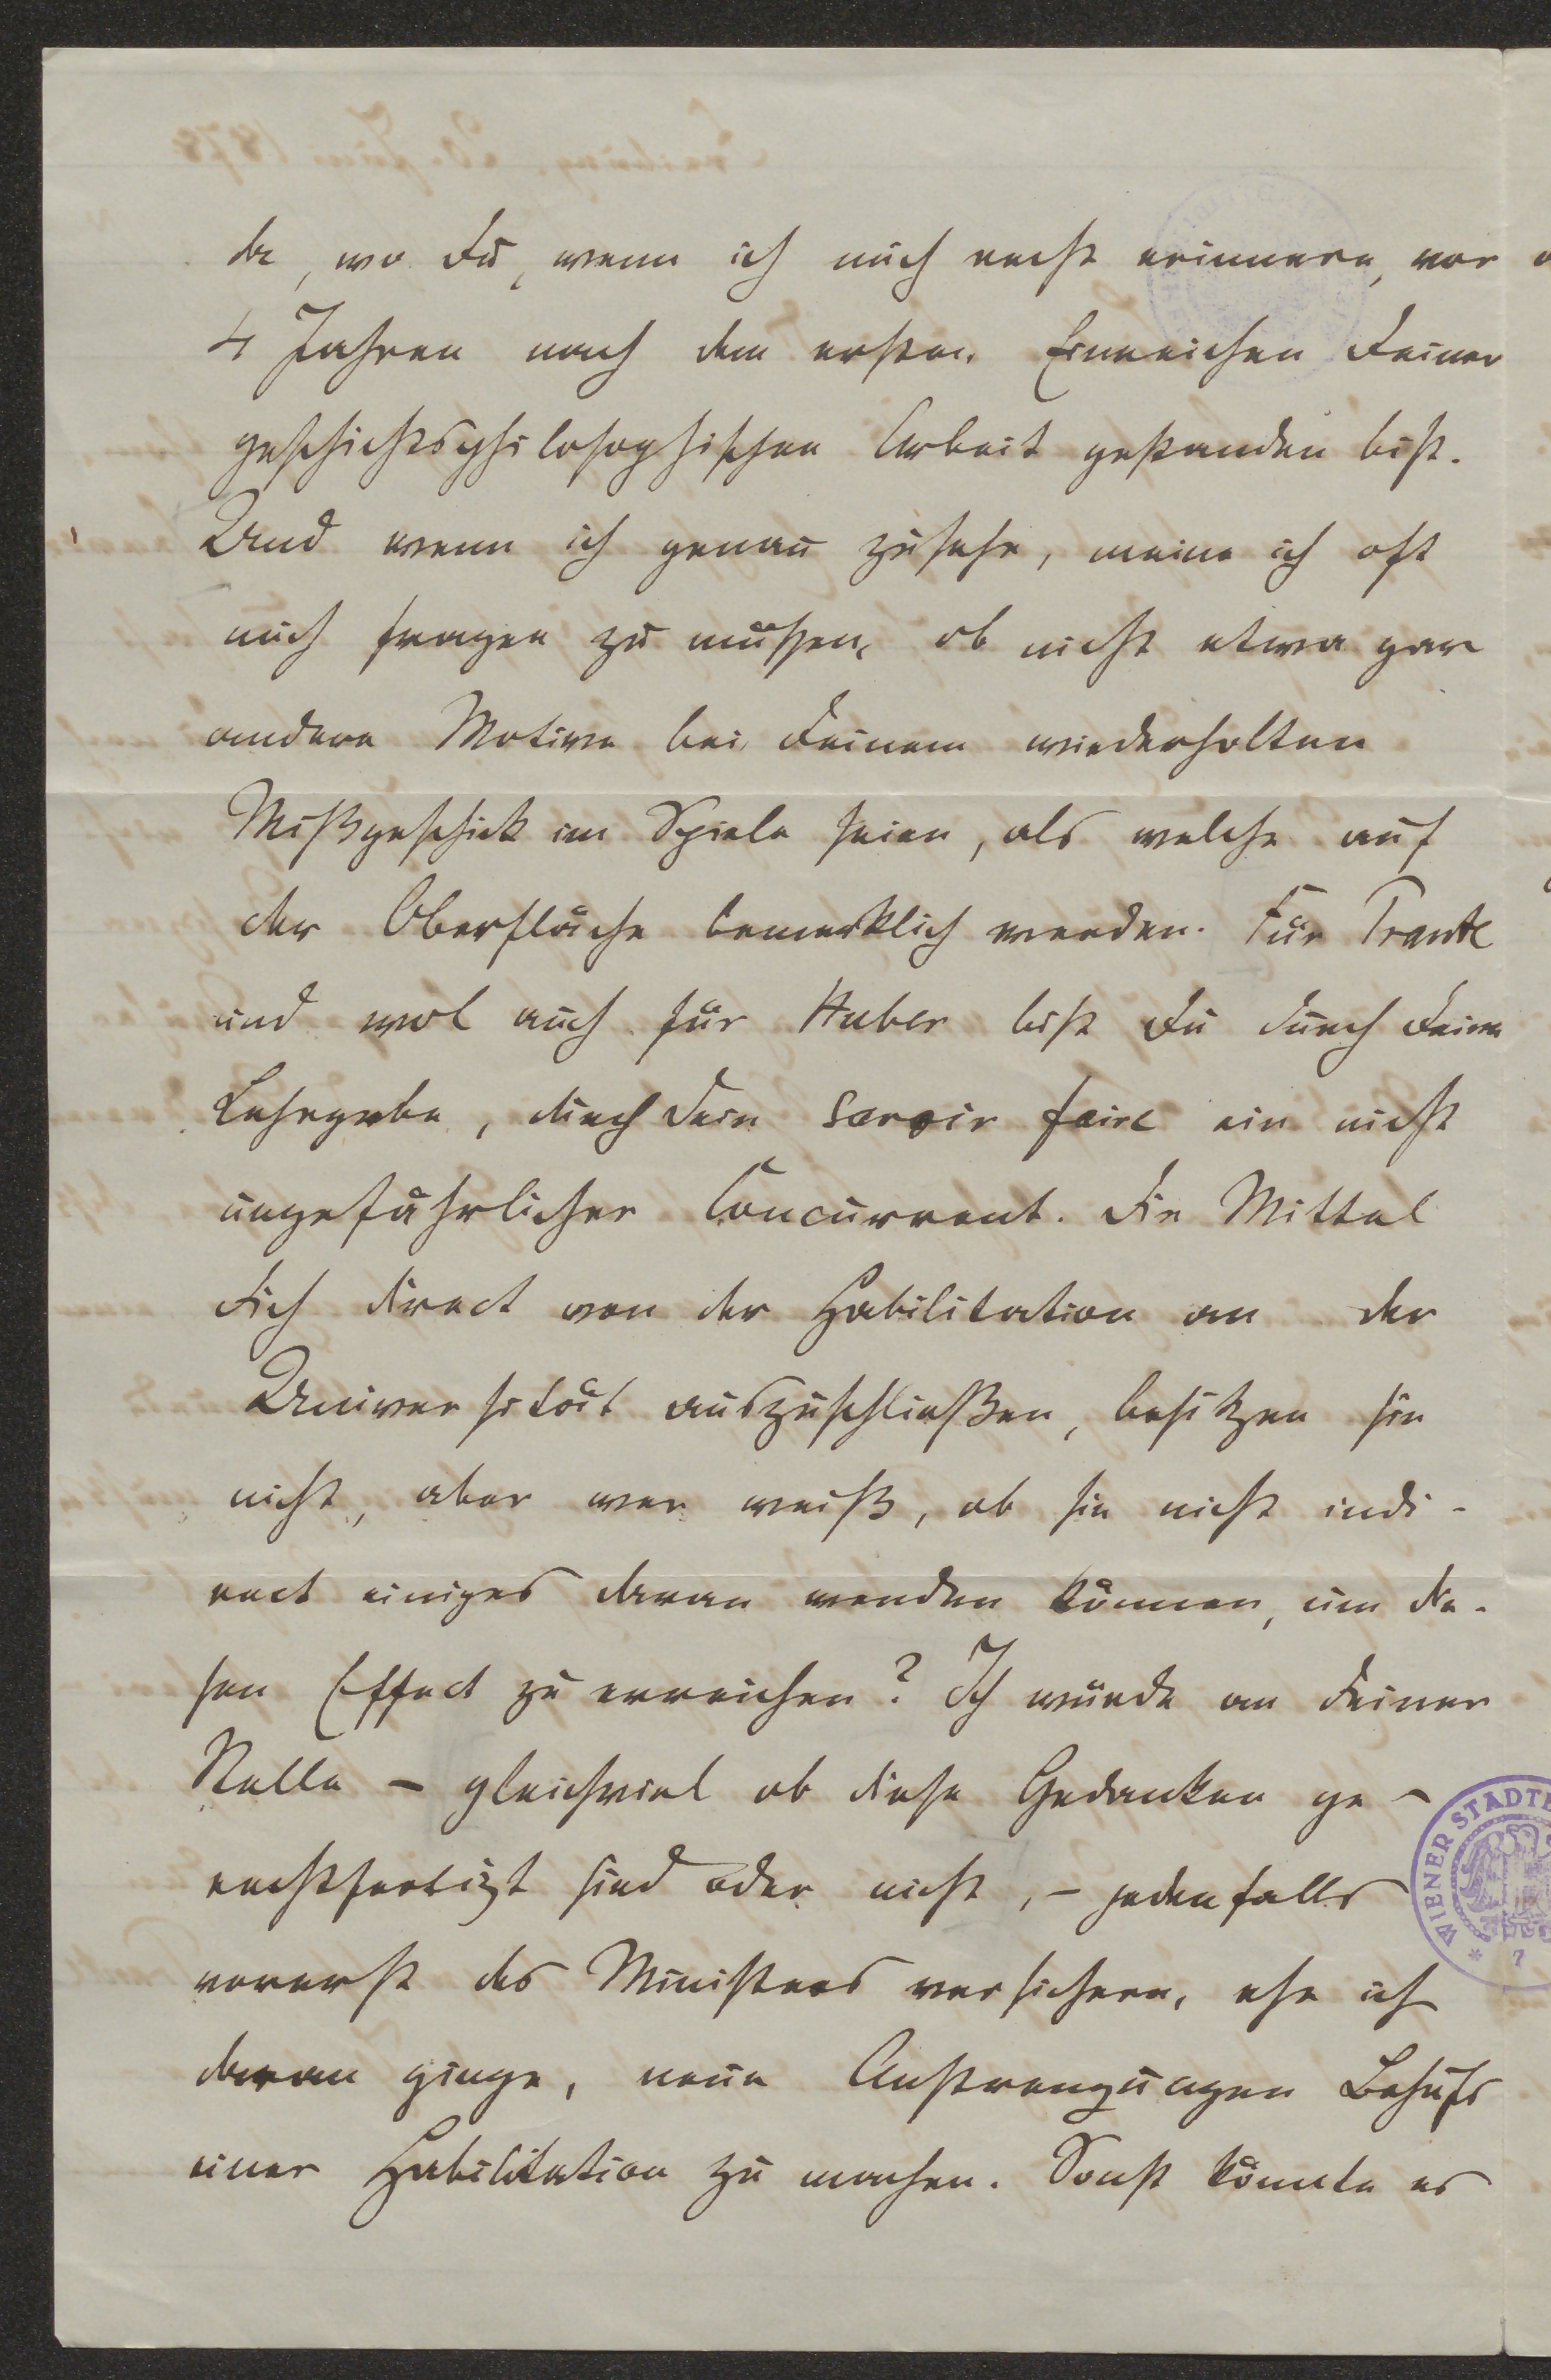 da, wo Du, wenn ich mich recht erinnere, vor
4 Jahren nach dem ersten Einreichen Deiner
geschichtsphilosophischen Arbeit gestanden bist.
Und wenn ich genau zusehe, meine ich oft
mich fragen zu müssen, ob nicht etwa gar
andere Motive bei Deinem wiederholten
Mißgeschick im Spiele seien, als welche auf
der Oberfläche bemerklich werden. Für Prantl
und wol auch für Huber bist Du durch Deine
Lehrgabe, durch Dein savoir faire ein nicht
ungefährlicher Concurrent. Die Mittel
Dich direct von der Habilitation an der
Universität auszuschließen, besitzen sie
nicht, aber wer weiß, ob sie nicht indi-
rect einiges daran wenden können, um die-
sen Effect zu erreichen? Ich würde an Deiner
Stelle – gleichviel ob diese Gedanken ge-
rechtfertigt sind oder nicht, – jedenfalls
vorerst des Ministers versichern, ehe ich
daran ginge, neue Anstrengungen Behufs
einer Habilitation zu machen. Sonst könnte es
WIENER STADTB
* 7